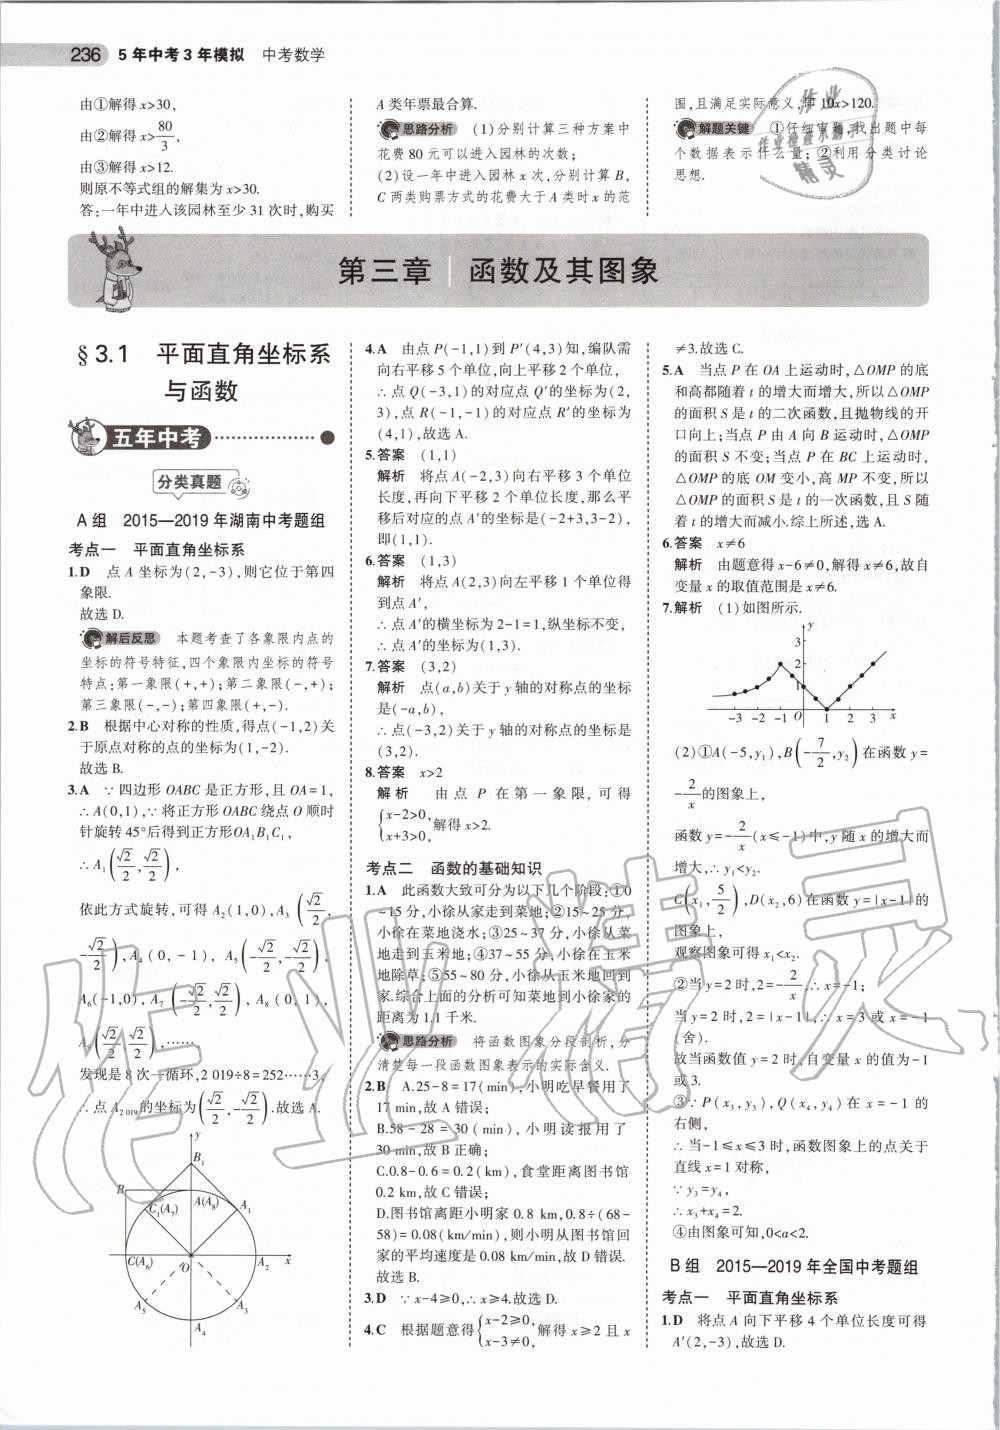 236 5年中考3年模拟 中考数学
由①解得 x>30,
由②解得 x>80/3,
由③解得 x>12.
则原不等式组的解集为 x>30.
答:一年中进入该园林至少 31 次时,购买
A 类年票最合算.
思路分析 (1)分别计算三种方案中
花费 80 元可以进入园林的次数;
(2)设一年中进入园林 x 次,分别计算 B、
C 两类购票方式的花费大于 A 类时 x 的范
围,且满足实际意义,即 10x>120.
解题关键 ①仔细审题,找出题中每
个数据表示什么量;②利用分类讨论
思想.
第三章 函数及其图象
§3.1 平面直角坐标系
与函数
五年中考
分类真题
A 组 2015—2019 年湖南中考题组
考点一 平面直角坐标系
1.D 点 A 坐标为(2,-3),则它位于第四
象限.
故选 D.
解后反思 本题考查了各象限内点的
坐标的符号特征,四个象限内坐标的符号
特点:第一象限(+,+);第二象限(-,+);
第三象限(-,-);第四象限(+,-).
2.B 根据中心对称的性质,得点(-1,2)关
于原点对称的点的坐标为(1,-2).
故选 B.
3.A ∵四边形 OABC 是正方形,且 OA=1,
∴A(0,1),∵将正方形 OABC 绕点 O 顺时
针旋转 45°后得到正方形OA₁B₁C₁,
∴A₁(√2/2,√2/2),
依此方式旋转,可得 A₂(1,0),A₃(√2/2,
-√2/2),A₄(0,-1),A₅(-√2/2,-√2/2),
A₆(-1,0),A₇(-√2/2,√2/2),A₈(0,1),
A₉(√2/2,√2/2),……,
发现是 8 次一循环,2 019÷8=252……3,
∴点 A₂₀₁₉的坐标为(√2/2,-√2/2).故选 A.
y
B₁
B
A(A₈)
C₁(A₇)
A₁
C(A₆)
O
A₂
x
A₅
A₃
A₄
4.A 由点 P(-1,1)到 P′(4,3)知,编队需
向右平移 5 个单位,向上平移 2 个单位,
∴点 Q(-3,1)的对应点 Q′的坐标为(2,
3),点 R(-1,-1)的对应点 R′的坐标为
(4,1),故选 A.
5.答案 (1,1)
解析 将点 A(-2,3)向右平移 3 个单位
长度,再向下平移 2 个单位长度,那么平
移后对应的点 A′的坐标是(-2+3,3-2),
即(1,1).
6.答案 (1,3)
解析 将点 A(2,3)向左平移 1 个单位得
到点 A′,
∴点 A′的横坐标为 2-1=1,纵坐标不变,
∴点 A′的坐标为(1,3).
7.答案 (3,2)
解析 点(a,b)关于 y 轴的对称点的坐标
是(-a,b),
∴点(-3,2)关于 y 轴的对称点的坐标是
(3,2).
8.答案 x>2
解析 由点 P 在第一象限,可得
{x-2>0,
x+3>0, 解得 x>2.
考点二 函数的基础知识
1.A 此函数大致可分为以下几个阶段:①0
~15 分,小徐从家走到菜地;②15~25 分,
小徐在菜地浇水;③25~37 分,小徐从菜
地走到玉米地;④37~55 分,小徐在玉米
地除草;⑤55~80 分,小徐从玉米地回到
家.综合上面的分析可知菜地到小徐家的
距离为 1.1 千米.
思路分析 将函数图象分段剖析,分
清楚每一段函数图象表示的实际含义.
2.B A.25-8=17(min),小明吃早餐用了
17 min,故 A 错误;
B.58-28=30(min),小明读报用了
30 min,故 B 正确;
C.0.8-0.6=0.2(km),食堂距离图书馆
0.2 km,故 C 错误;
D.图书馆离距小明家 0.8 km,0.8÷(68-
58)=0.08(km/min),则小明从图书馆回
家的平均速度是 0.08 km/min,故 D 错误.
故选 B.
3.D ∵x-4≥0,∴x≥4.故选 D.
4.C 根据题意得{x-2≥0,
x-3≠0, 解得 x≥2 且 x
≠3.故选 C.
5.A 当点 P 在 OA 上运动时,△OMP 的底
和高都随着 t 的增大而增大,所以△OMP
的面积 S 是 t 的二次函数,且抛物线的开
口向上;当点 P 由 A 向 B 运动时,△OMP
的面积 S 不变;当点 P 在 BC 上运动时,
△OMP 的底 OM 变小,高 MP 不变,所以
△OMP 的面积 S 是 t 的一次函数,且 S 随
着 t 的增大而减小.综上所述,选 A.
6.答案 x≠6
解析 由题意得 x-6≠0,解得 x≠6,故自
变量 x 的取值范围是 x≠6.
7.解析 (1)如图所示.
y
3
2
1
-3 -2 -1 O 1 2 3 x
(2)①A(-5,y₁),B(-7/2,y₂)在函数 y=
-2/x的图象上,
函数 y=-2/x(x≤-1)中,y 随 x 的增大而
增大,∴y₁<y₂.
C(x₁,5/2),D(x₂,6)在函数 y=|x-1|的
图象上,
观察图象可得 x₁<x₂.
②当 y=2 时,2=-2/x,∴x=-1;
当 y=2 时,2=|x-1|,∴x=3 或 x=-1
(舍).
故当函数值 y=2 时,自变量 x 的值为-1
或 3.
③∵P(x₃,y₃),Q(x₄,y₄)在 x=-1 的
右侧,
∴当-1≤x≤3 时,函数图象上的点关于
直线 x=1 对称,
∵y₃=y₄,
∴x₃+x₄=2.
④由图象可知,0<a<2.
B 组 2015—2019 年全国中考题组
考点一 平面直角坐标系
1.D 将点 A 向下平移 4 个单位长度可得
A′(2,-3),故选 D.
作业
作业检查小助手
精灵
作业精灵